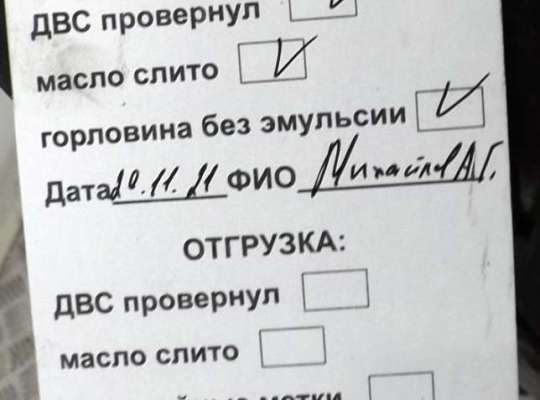 ДВС провернул
масло слито
горловина без эмульсии
Дата 20.11.21 ФИО Михайлов А.Г.
ОТГРУЗКА:
ДВС провернул
масло слито
метки